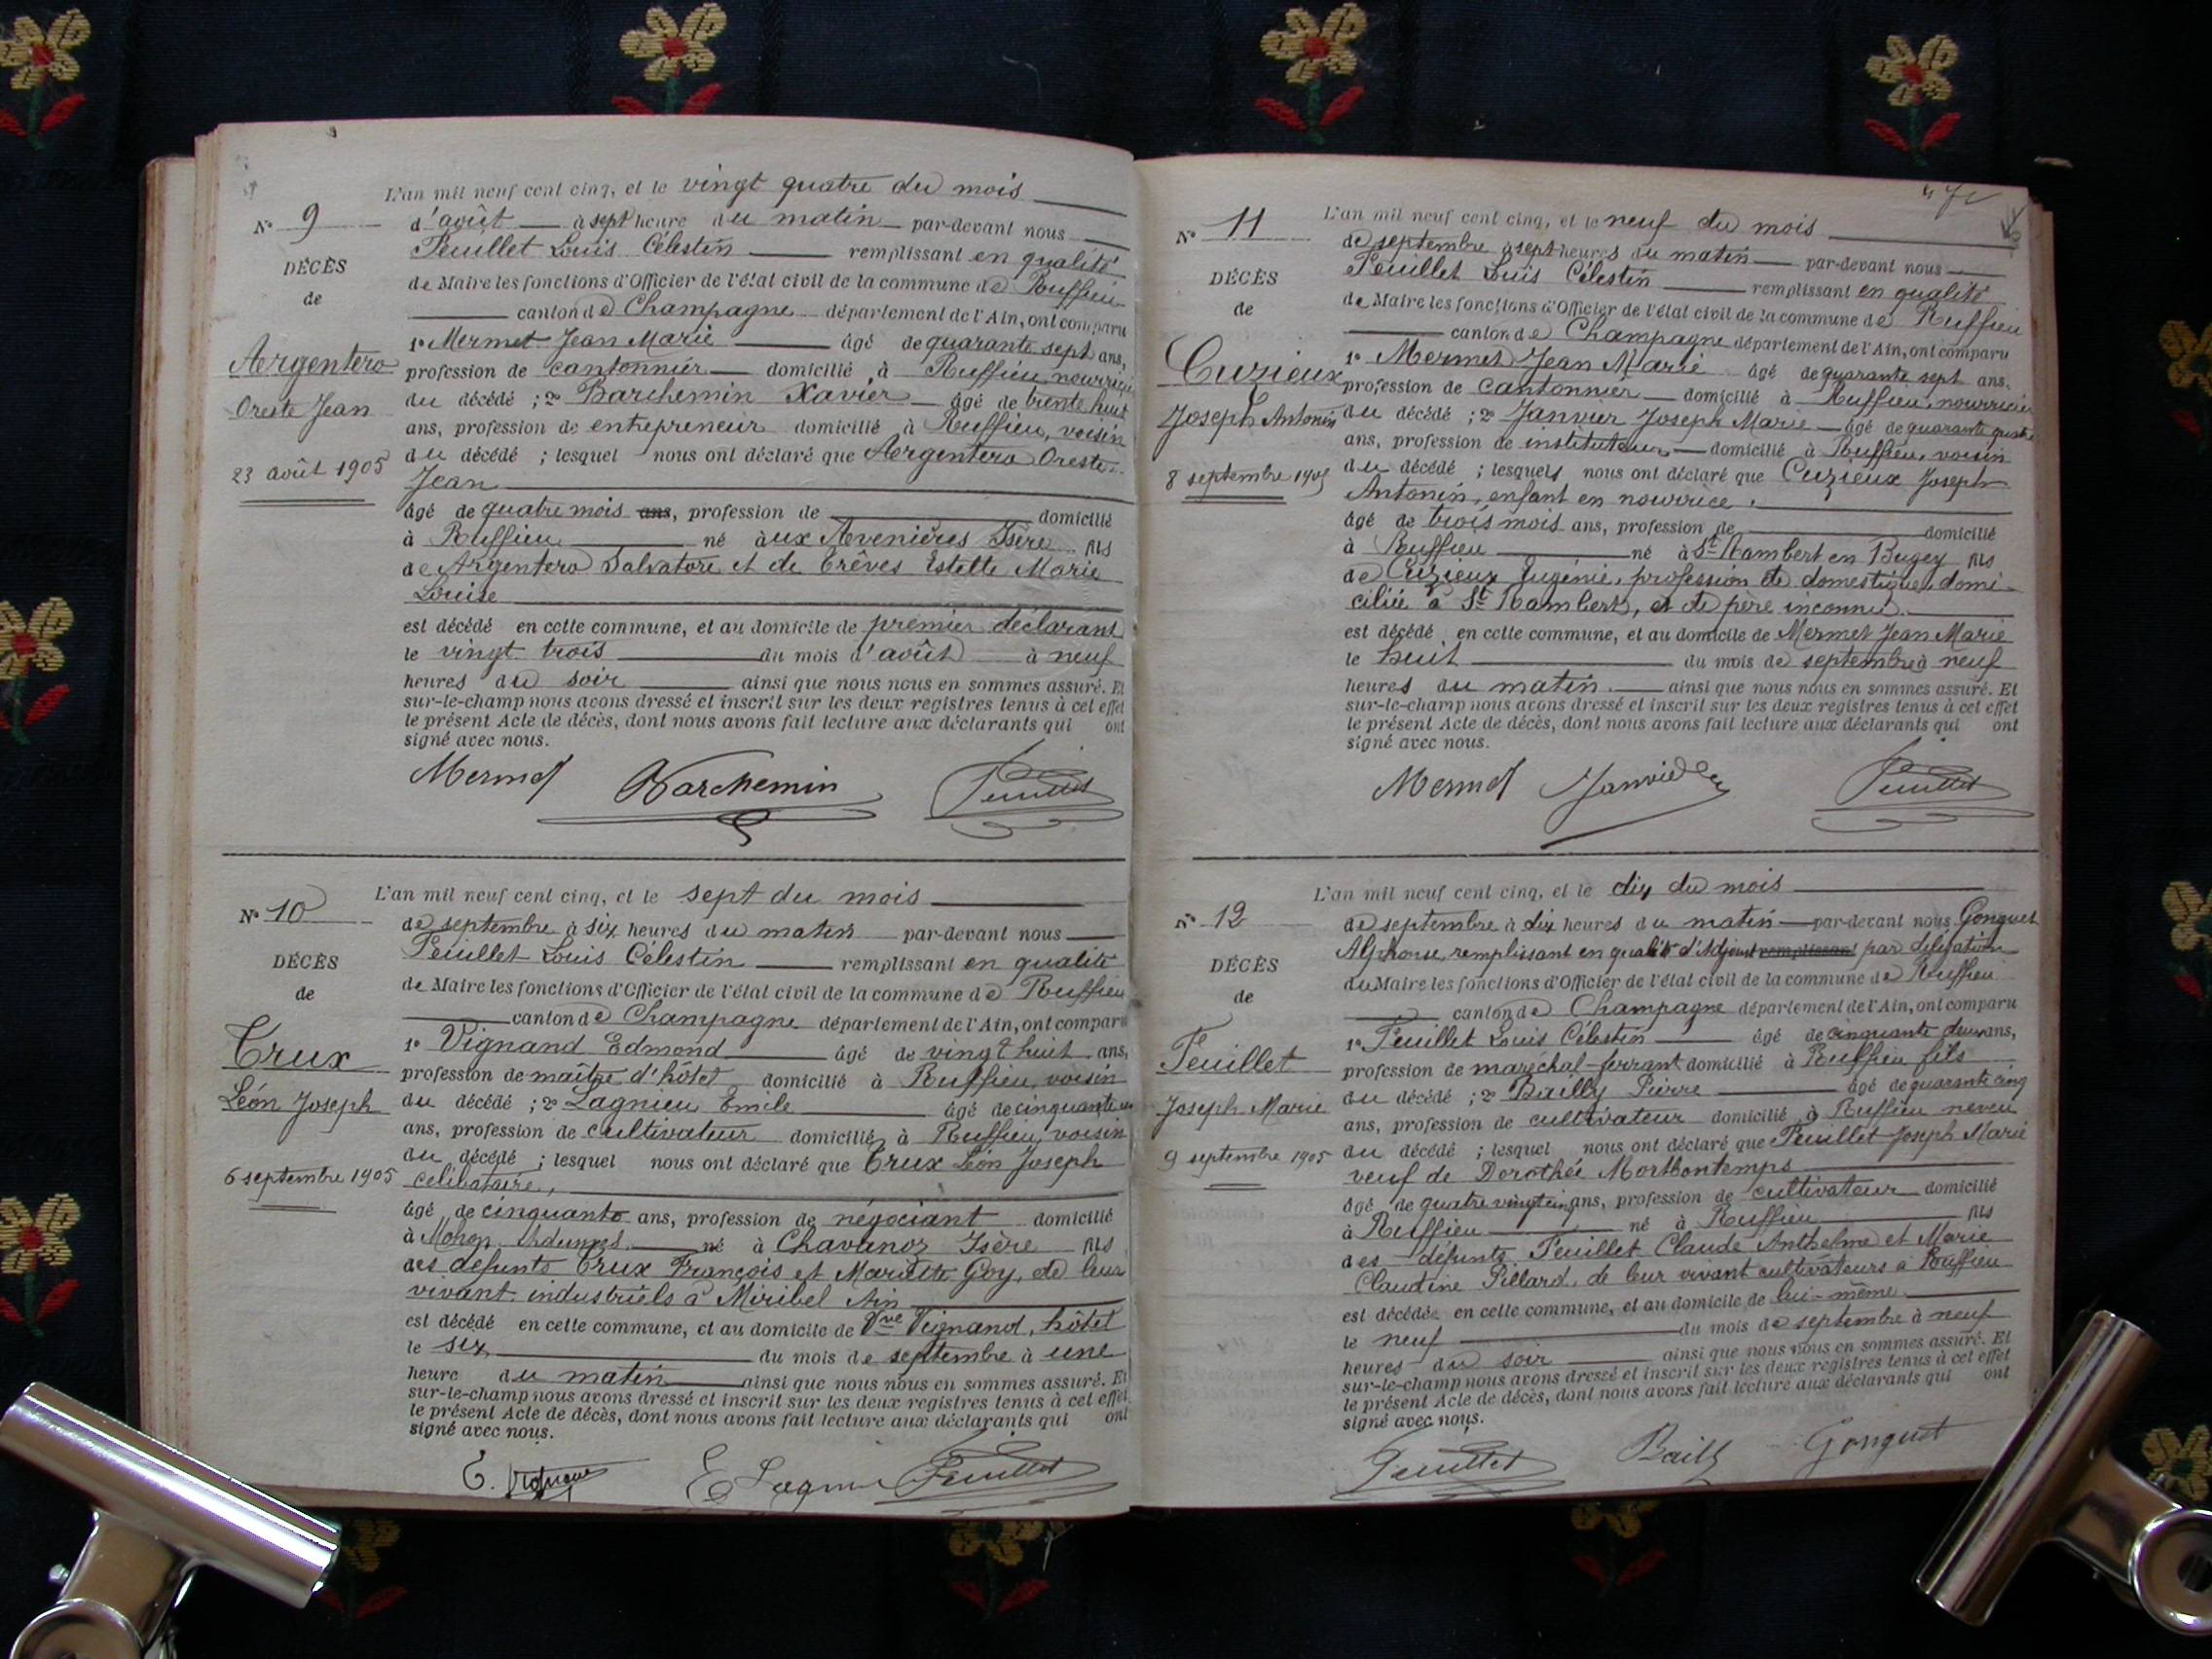 L'an mil neuf cent cinq, et le vingt quatre du mois
N° 9
d'août à sept heure du matin par-devant nous
Feuillet Louis Célestin remplissant en qualité
DÉCÈS
de Maire les fonctions d'Officier de l'état civil de la commune de Ruffieu
de
canton de Champagne département de l'Ain, ont comparu
1° Mermet Jean Marie âgé de quarante sept ans,
Argentero
profession de cantonnier domicilié à Ruffieu, nourricier
Oreste Jean
du décédé ; 2° Barchemin Xavier âgé de trente huit
ans, profession de entrepreneur domicilié à Ruffieu, voisin
du décédé ; lesquel nous ont déclaré que Argentero Oreste
23 août 1905
Jean
âgé de quatre mois ans, profession de domicilié
à Ruffieu né aux Avenières Isère fils
de Argentero Salvatore et de Trêves Estelle Marie
Louise
est décédé en cette commune, et au domicile de premier déclarant
le vingt trois du mois d'août à neuf
heures du soir ainsi que nous nous en sommes assuré. Et
sur-le-champ nous avons dressé et inscrit sur les deux registres tenus à cet effet
le présent Acte de décès, dont nous avons fait lecture aux déclarants qui ont
signé avec nous.
Mermet Barchemin Feuillet
L'an mil neuf cent cinq, et le sept du mois
N° 10
de septembre à six heures du matin par-devant nous
Feuillet Louis Célestin remplissant en qualité
DÉCÈS
de Maire les fonctions d'Officier de l'état civil de la commune de Ruffieu
de
canton de Champagne département de l'Ain, ont comparu
1° Vignand Edmond âgé de vingt huit ans,
Crux
profession de maître d'hôtel domicilié à Ruffieu, voisin
Léon Joseph
du décédé ; 2° Lagnieu Emile âgé de cinquante un
ans, profession de cultivateur domicilié à Ruffieu, voisin
du décédé ; lesquel nous ont déclaré que Crux Léon Joseph
6 septembre 1905
célibataire,
âgé de cinquante ans, profession de négociant domicilié
à Mohon né à Chavanoz Isère fils
des défunts Crux François et Mariette Goy, de leur
vivant industriels à Miribel Ain
est décédé en cette commune, et au domicile de Vve Vignand, hôtel
le six du mois de septembre à une
heure du matin ainsi que nous nous en sommes assuré. Et
sur-le-champ nous avons dressé et inscrit sur les deux registres tenus à cet effet
le présent Acte de décès, dont nous avons fait lecture aux déclarants qui ont
signé avec nous.
E. E Lagnieu Feuillet
L'an mil neuf cent cinq, et le neuf du mois
N° 11
de septembre à sept heures du matin par-devant nous
Feuillet Louis Célestin remplissant en qualité
DÉCÈS
de Maire les fonctions d'Officier de l'état civil de la commune de Ruffieu
de
canton de Champagne département de l'Ain, ont comparu
1° Mermet Jean Marie âgé de quarante sept ans.
Cuzieux
profession de cantonnier domicilié à Ruffieu, nourricier
Joseph Antonin
du décédé ; 2° Janvier Joseph Marie âgé de quarante quatre
ans, profession de instituteur domicilié à Ruffieu, voisin
8 septembre 1905
du décédé ; lesquels nous ont déclaré que Cuzieux Joseph
Antonin, enfant en nourrice,
âgé de trois mois ans, profession de domicilié
à Ruffieu né à St Rambert en Bugey fils
de Cuzieux Eugénie, profession de domestique, domi-
ciliée à St Rambert, et de père inconnu.
est décédé en cette commune, et au domicile de Mermet Jean Marie
le huit du mois de septembre à neuf
heures du matin. ainsi que nous nous en sommes assuré. Et
sur-le-champ nous avons dressé et inscrit sur les deux registres tenus à cet effet
le présent Acte de décès, dont nous avons fait lecture aux déclarants qui ont
signé avec nous.
Mermet Janvier Feuillet
L'an mil neuf cent cinq, et le dix du mois
N° 12
de septembre à dix heures du matin par-devant nous Gonguet
Alphonse, remplissant en qualité d'Adjoint remplissant par délégation
DÉCÈS
du Maire les fonctions d'Officier de l'état civil de la commune de Ruffieu
de
canton de Champagne département de l'Ain, ont comparu
1° Feuillet Louis Célestin âgé de cinquante deux ans,
Feuillet
profession de maréchal-ferrant domicilié à Ruffieu fils
Joseph Marie
du décédé ; 2° Bailly Pierre âgé de quarante cinq
ans, profession de cultivateur domicilié à Ruffieu neveu
9 septembre 1905
du décédé ; lesquel nous ont déclaré que Feuillet Joseph Marie
veuf de Dorothée Mortbontemps
âgé de quatre vingt cinq ans, profession de cultivateur domicilié
à Ruffieu né à Ruffieu fils
des défunts Feuillet Claude Anthelme et Marie
Claudine Pillard, de leur vivant cultivateurs à Ruffieu
est décédée en cette commune, et au domicile de lui-même
le neuf du mois de septembre à neuf
heures du soir ainsi que nous nous en sommes assuré. Et
sur-le-champ nous avons dressé et inscrit sur les deux registres tenus à cet effet
le présent Acte de décès, dont nous avons fait lecture aux déclarants qui ont
signé avec nous.
Feuillet Bailly Gonguet